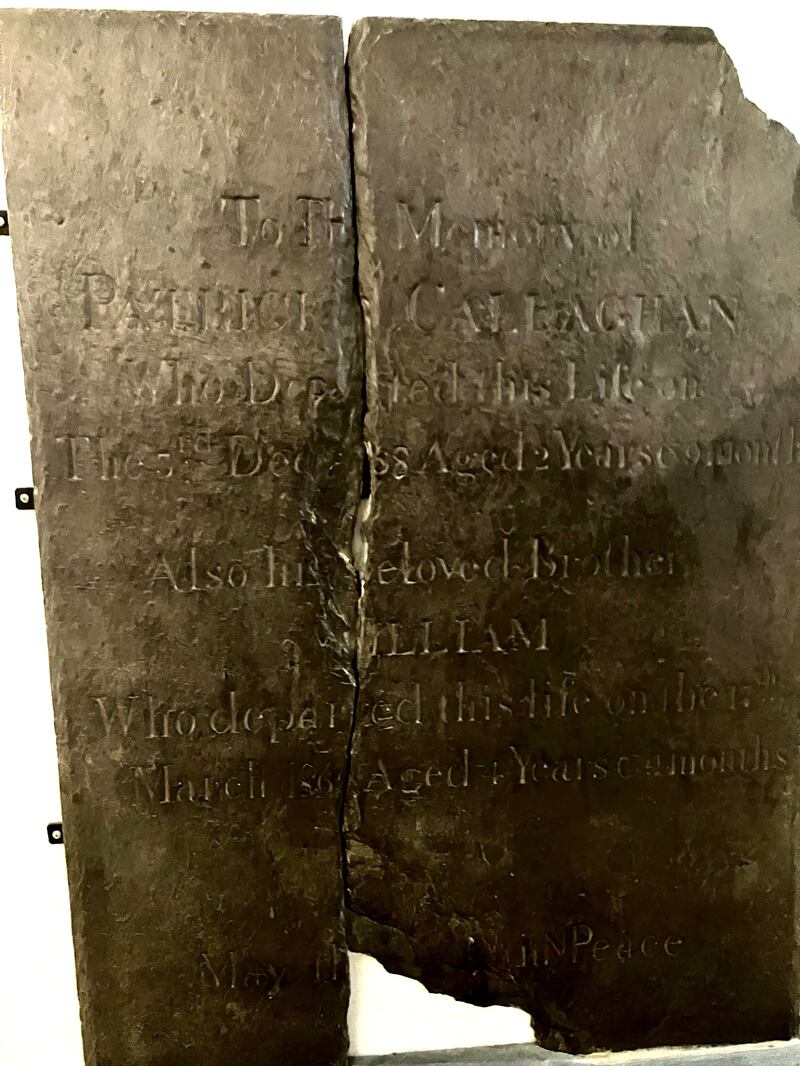 To Th Memory of
PATRICK CALLAGHAN
Who Dep rted this Life on
The Dec 58 Aged 2 Years & 9 month
Also his eloved Brother
ILLIAM
Who departed this life on the 17th
March 186 Aged 4 Years & 2 months
May th IN Peace